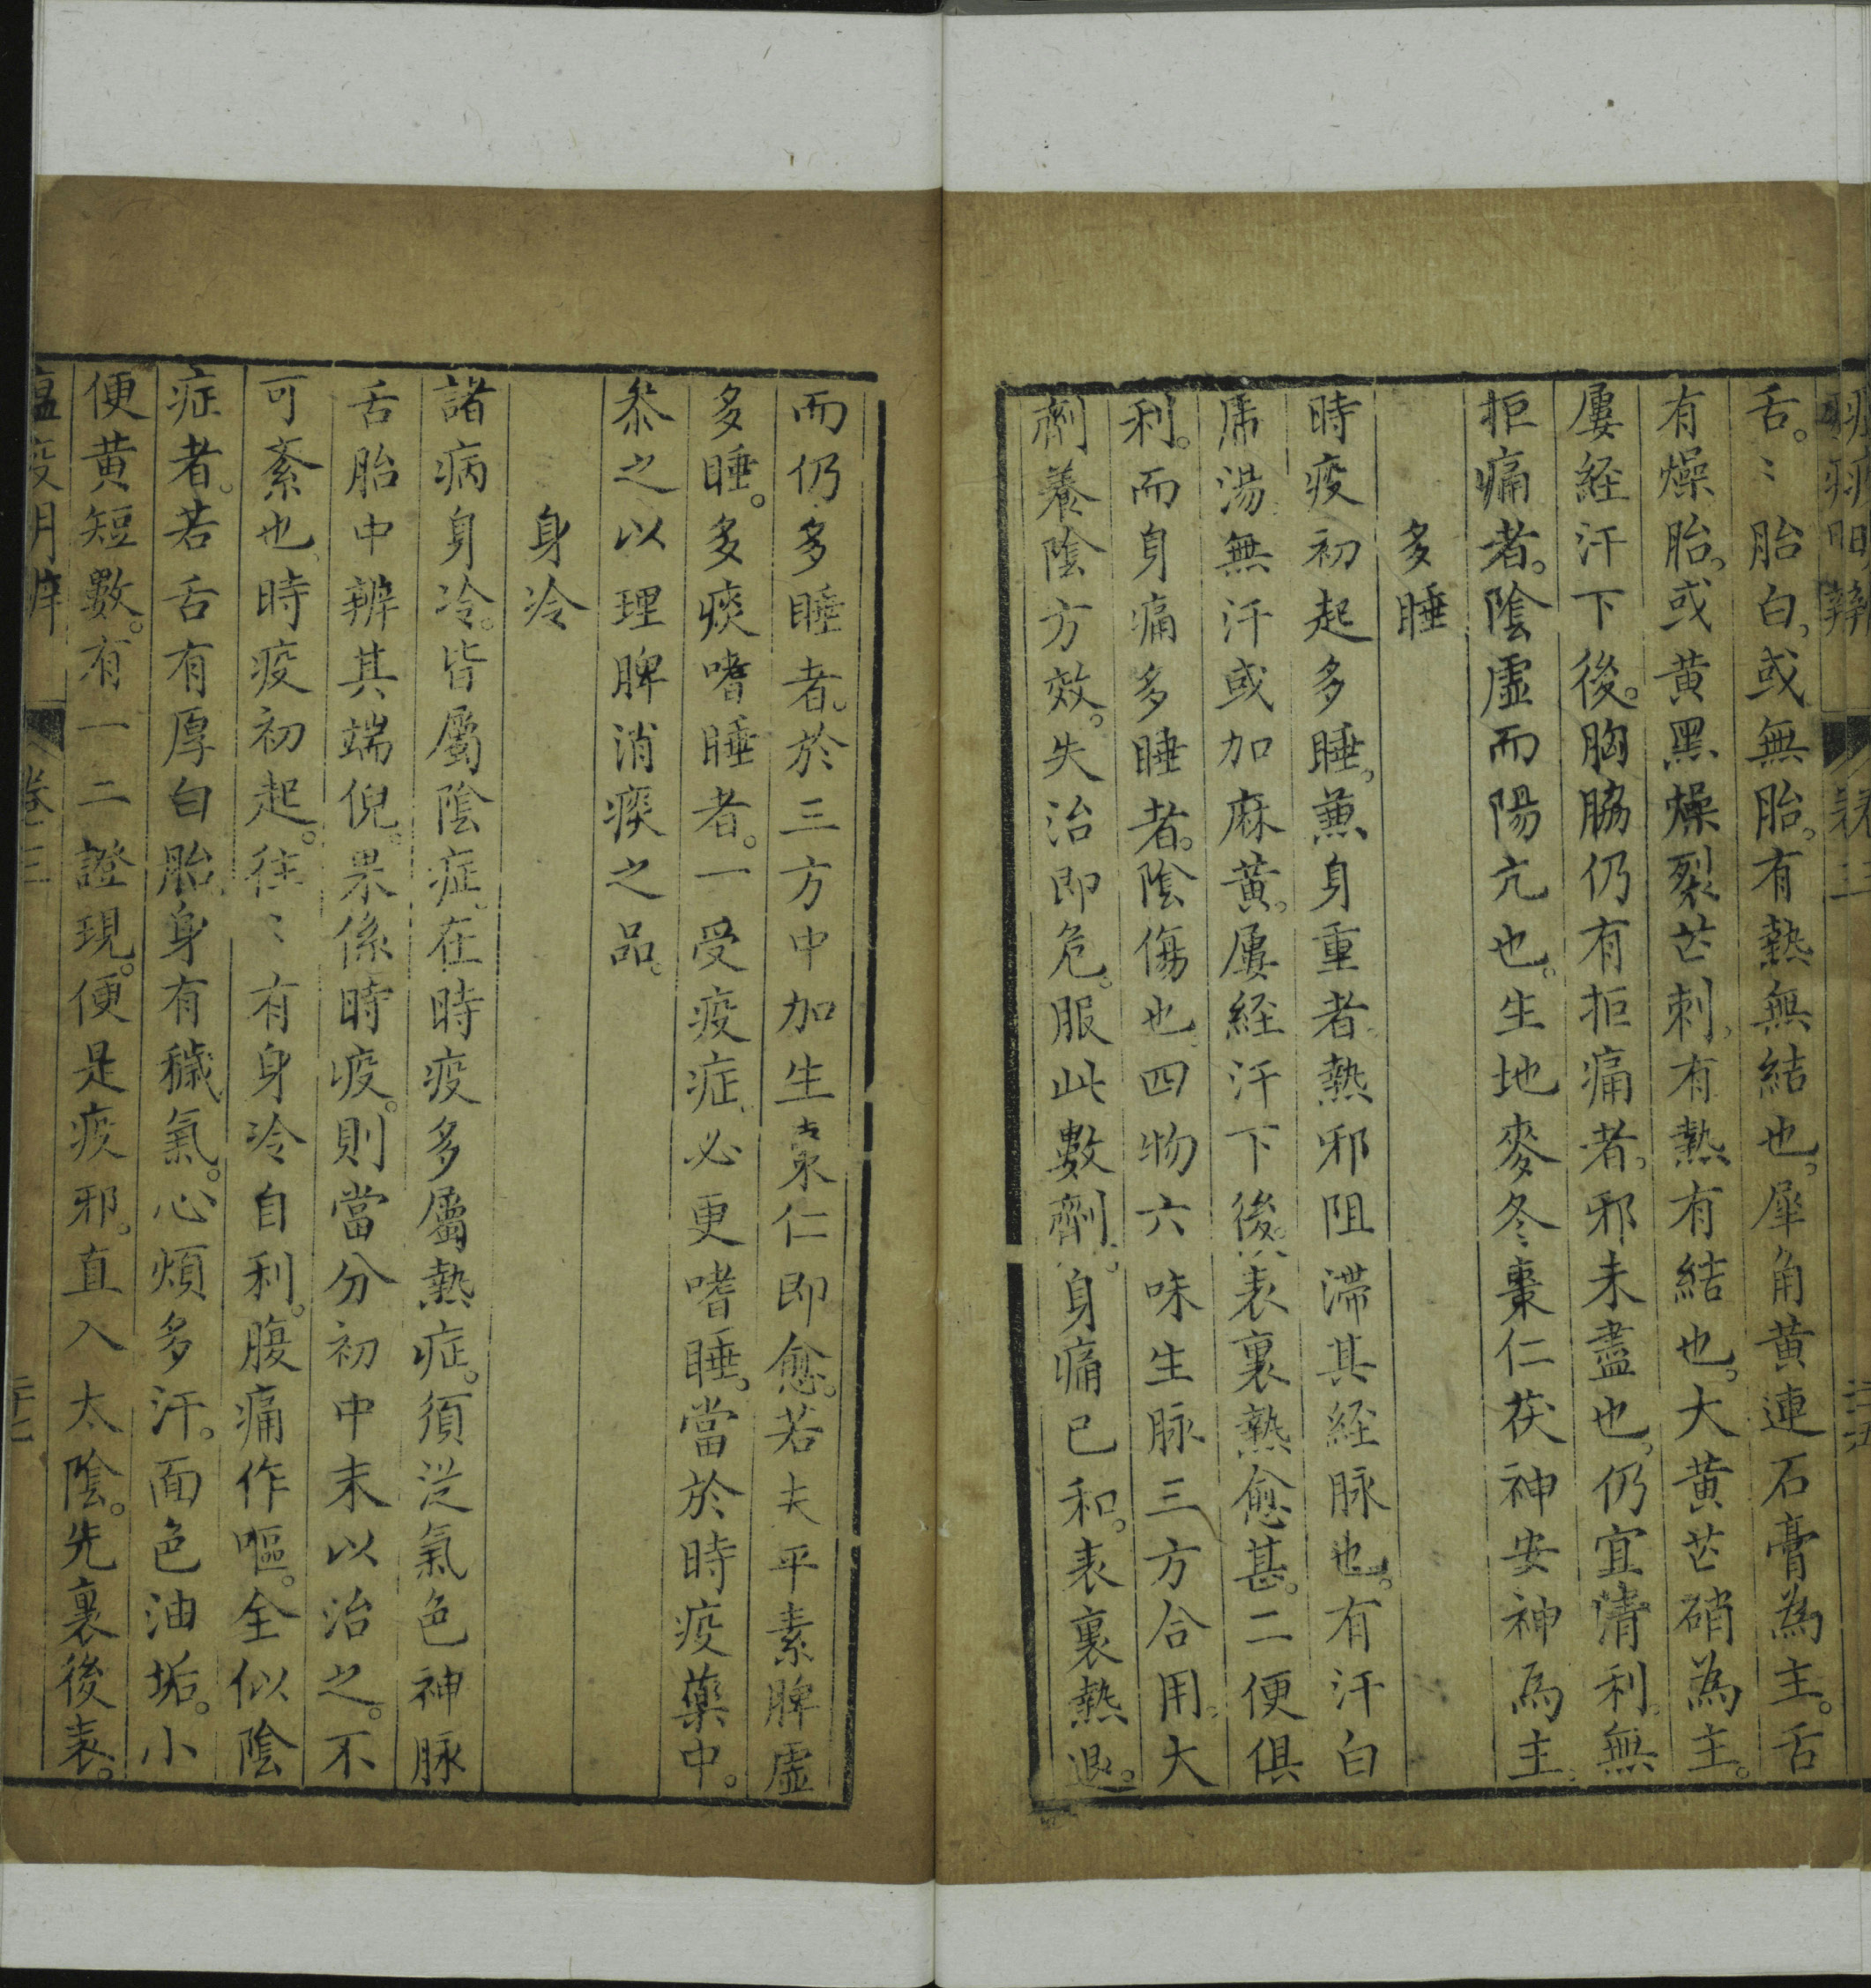 舌。〻胎白,或無胎。有熱無結也。犀角黄連石膏為主。舌
有燥胎。或黄黑燥裂芒刺,有熱有結也。大黄芒硝為主。
屢経汗下後。胸脇仍有拒痛者。邪未盡也,仍宜清利。無
拒痛者。陰虚而陽亢也。生地麥冬棗仁茯神安神為主。
多睡
時疫初起多睡,兼身重者。熱邪阻滞其経脉也。有汗白
虎湯。無汗或加麻黄。屢経汗下後。表裏熱愈甚。二便俱
利。而身痛多睡者。陰傷也。四物六味生脉三方合用。大
劑養陰方效。失治即危。服此數劑。身痛已和。表裏熱退。
而仍多睡者。於三方中加生棗仁即愈。若夫平素脾虚
多睡。多痰嗜睡者。一受疫症。必更嗜睡。當於時疫藥中。
叅之以理脾消痰之品。
身冷
諸病身冷。皆屬陰症。在時疫多屬熱症。須從氣色神脉
舌胎中辨其端倪。果係時疫。則當分初中末以治之。不
可紊也。時疫初起。徃〻有身冷自利。腹痛作嘔。全似陰
症者。若舌有厚白胎。身有穢氣。心煩多汗。面色油垢。小
便黄短數。有一二證現。便是疫邪。直入太陰。先裏後表。
瘟疫明辨
卷三